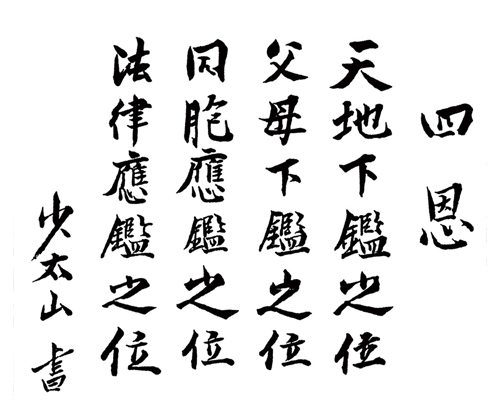 四恩
天地下鑑之位
父母下鑑之位
同胞應鑑之位
法律應鑑之位
少太山 書